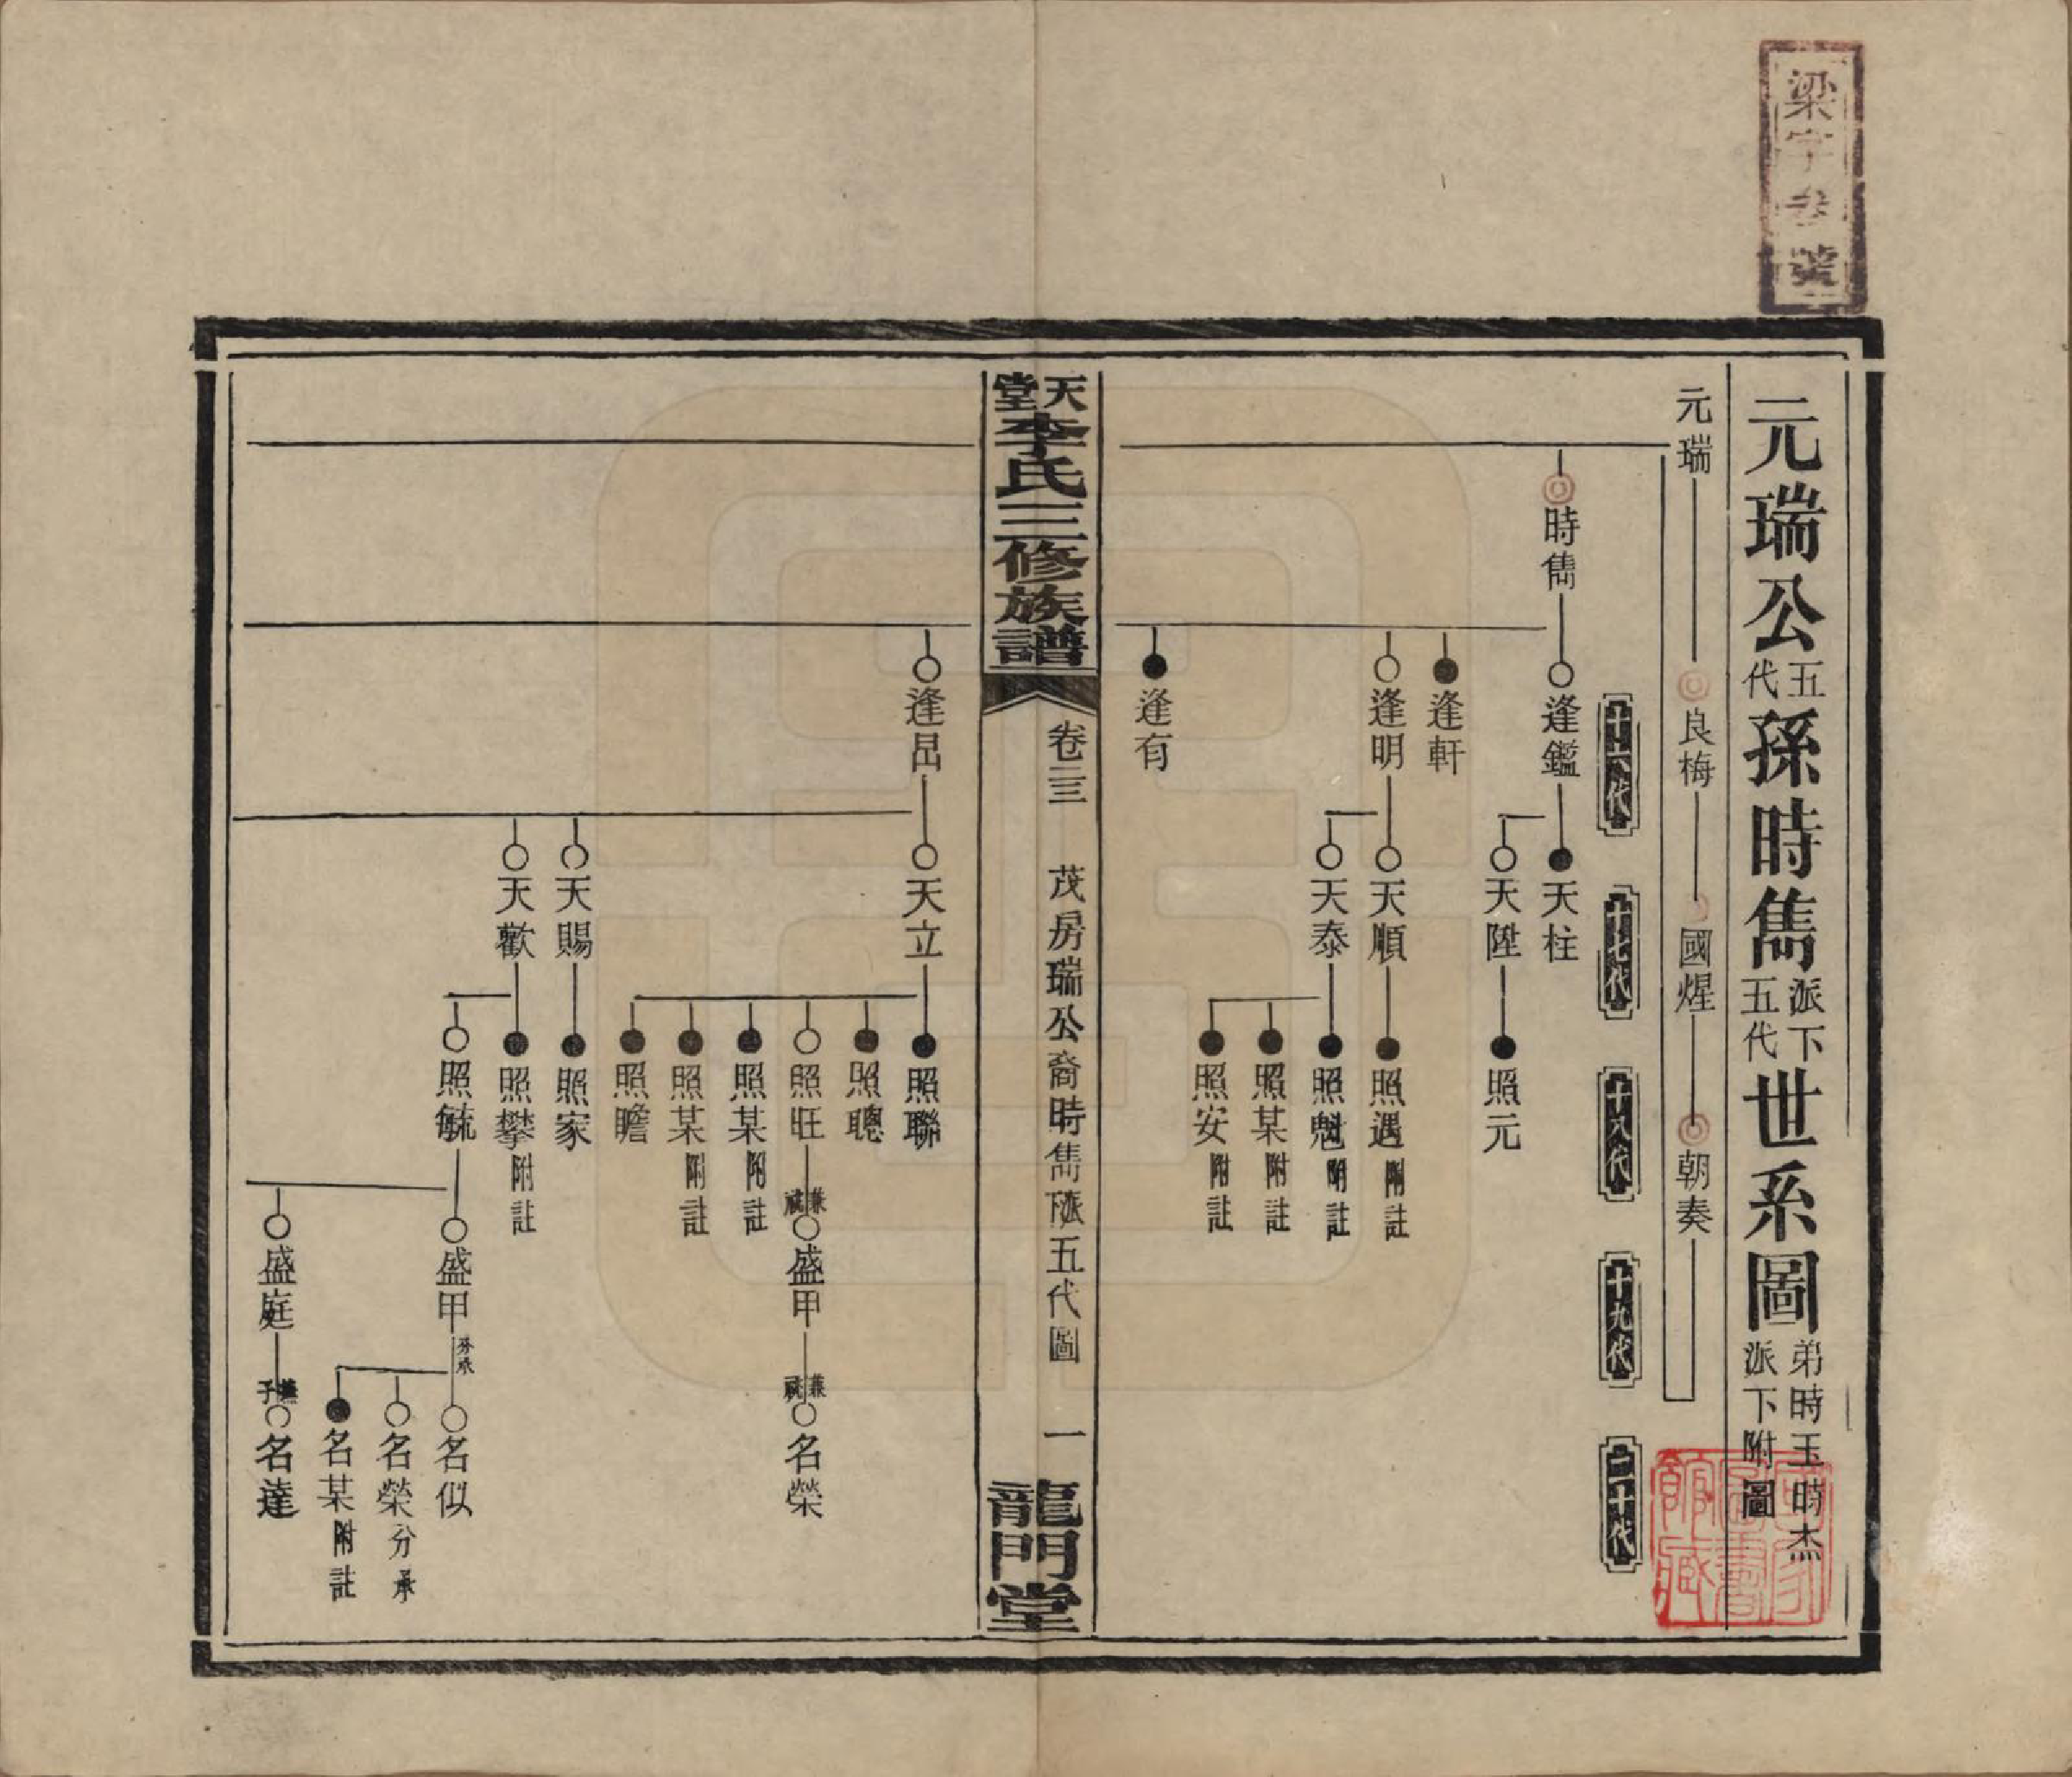 梁字卷號
元瑞公五代孫時雋派下五代世系圖弟時玉時杰派下附圖
元瑞 良梅 國煋 朝奏
十六代 十七代 十八代 十九代 二十代
時雋 逢鑑 天柱
天陞 照元
逢軒
逢明 天順 照遇附註
天泰 照魁附註
照某附註
照安附註
逢有
天堂李氏三修族譜 卷三三 茂房瑞公裔時雋派下五代圖 一 龍門堂
逢昌 天立 照聯
照聰
照旺 兼祧 盛甲 兼祧 名榮
照某附註
照某附註
照瞻
天賜 照家
天歡 照攀附註
照毓 盛甲 分承 名似
名榮分承
名某附註
盛庭 名達
國家圖書館藏